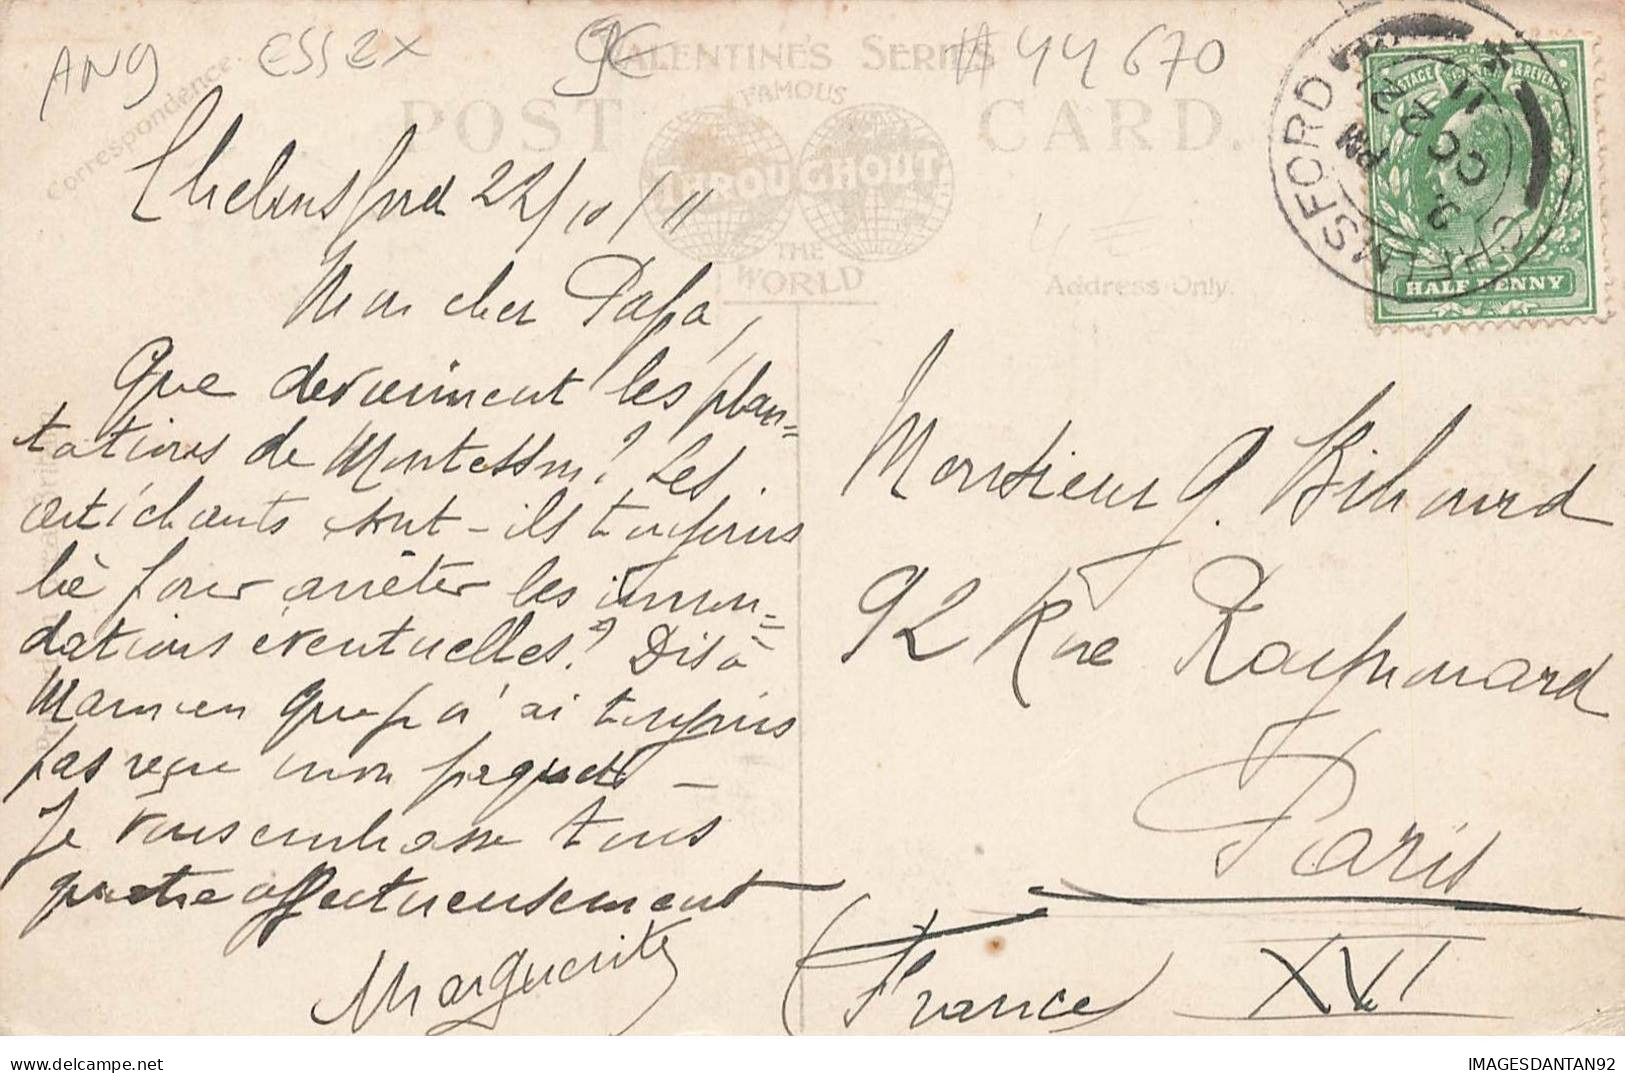 ANG ESSEX 9€ #44670
VALENTINE'S SERIES
FAMOUS
THROUGHOUT
THE
WORLD
POST CARD.
Correspondence.
Address Only.
CHELMSFORD
9. PM
OC 22
11
POSTAGE & REVENUE
HALF PENNY
Chelmsford 22/10/11
Mon cher Papa,
Que deviennent les plan=
tations de Montesson? Les
artichauts sont-ils toujours
là pour arrêter les innon=
dations éventuelles? Dis à
Maman que je n'ai toujours
pas reçu mon paquet -
Je vous embrasse tous
quatre affectueusement
Marguerite
Monsieur G. Bihourd
92 Rue Raynouard
Paris
France XVI
IMAGESDANTAN92